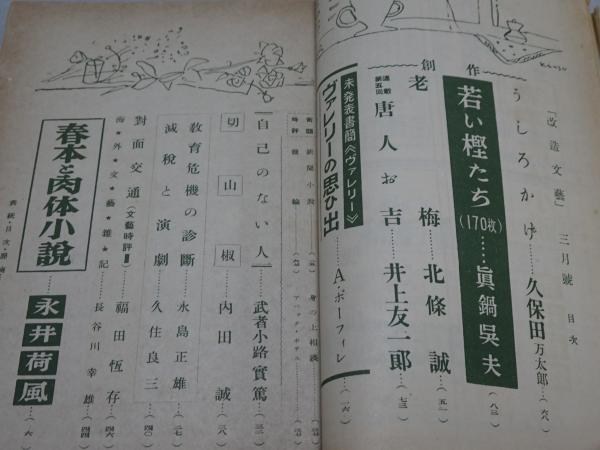 「改造文藝」三月號 目次
うしろかげ……久保田万太郎…(六八)
創作
若い樫たち(170枚)……眞鍋呉夫…(八三)
老梅……北條誠…(五一)
連載第五回 唐人お吉……井上友一郎…(七三)
未発表書簡《ヴァレリー》
ヴァレリーの思ひ出……A・ポーフィレ…(一六)
身の上相談
「自己のない人」……武者小路實篤…(三二)
切山椒……内田誠…(三八)
教育危機の診断……永島正雄…(二七)
減税と演劇……久住良三…(四〇)
対面交通(文藝時評Ⅲ)……福田恆存…(四六)
海★外★文★藝★雑★記……長谷川幸雄…(四四)
春本と肉体小説……永井荷風…(六)
表紙・目次・扉